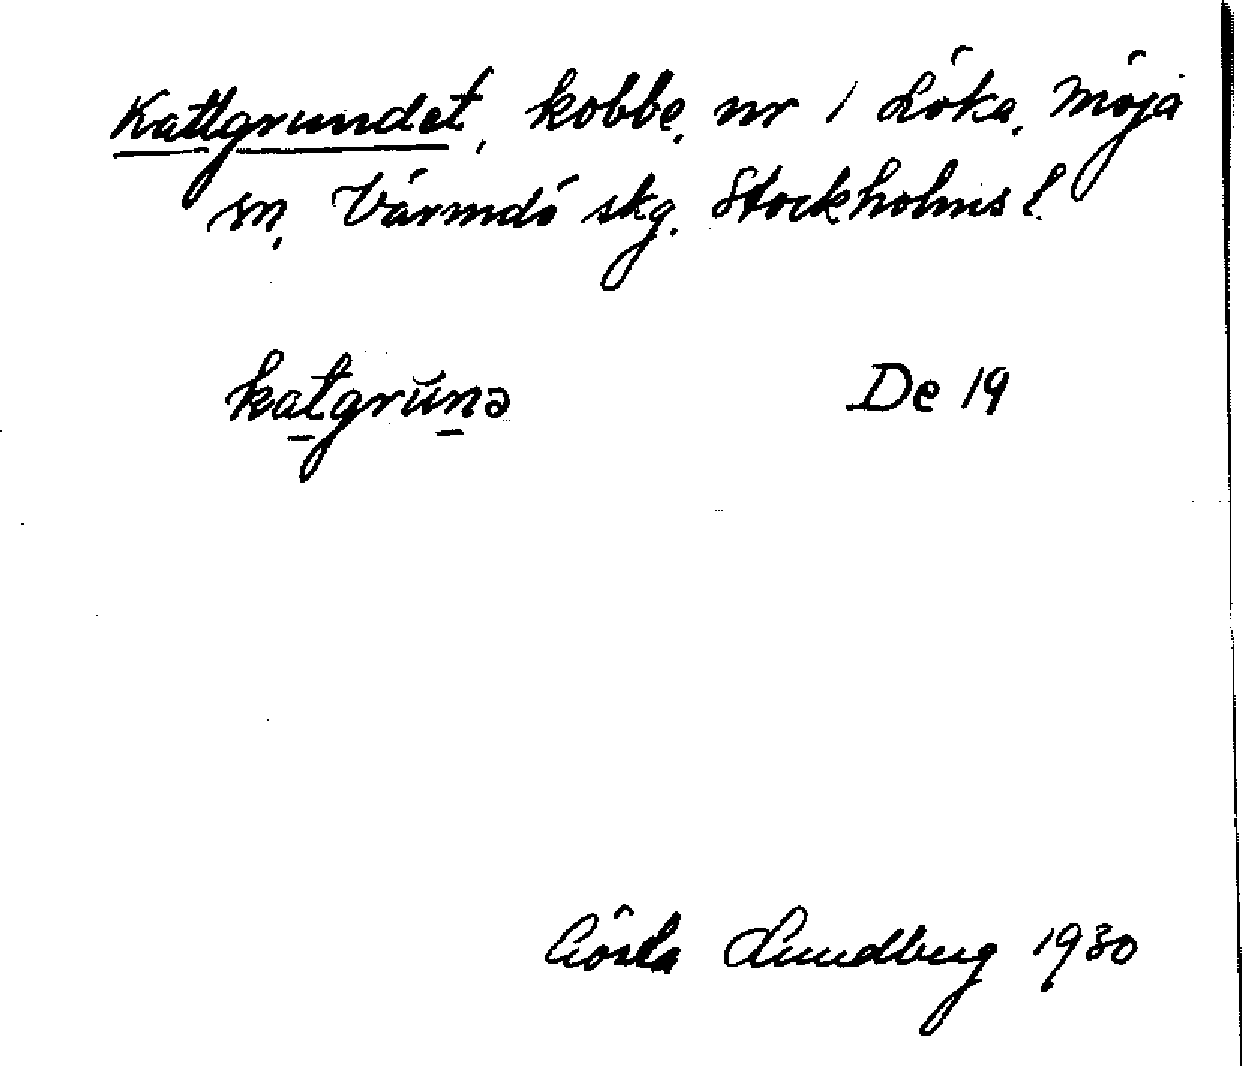 Kattgrundet, kobbe, nr 1 Löka, Möja
sn, Värmdö skg. Stockholms l.
katgrŭnə
De 19
Gösta Lundberg 1930